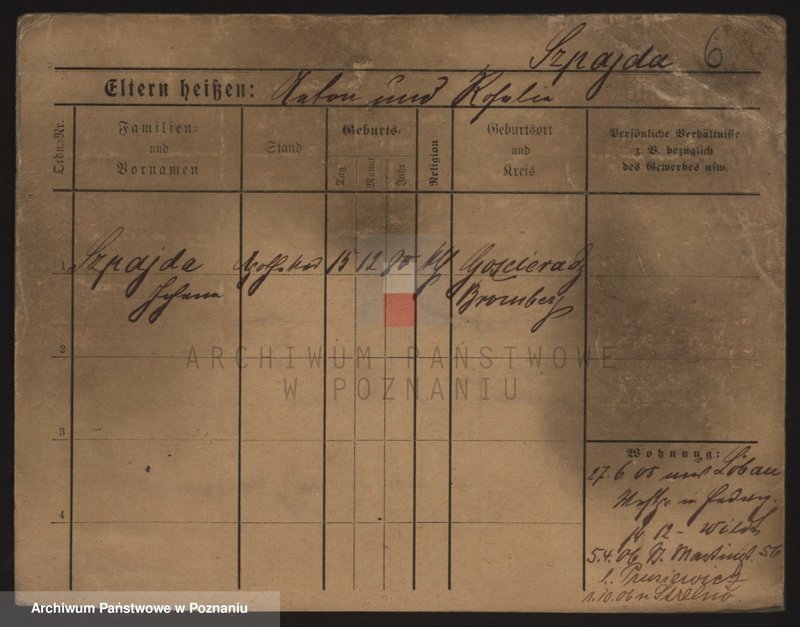 Szpajda 6
Eltern heißen: Anton und Rosalie
Ordn.-Nr.
Familien-
und
Vornamen
Stand
Geburts-
Tag
Monat
Jahr
Religion
Geburtsort
und
Kreis
Persönliche Verhältnisse
z. B. bezüglich
des Gewerbes usw.
1 Szpajda 15 12 Goscieradz
Johann Bromberg
2
3
4
ARCHIWUM PAŃSTWOWE
W POZNANIU
Wohnung:
27.6.05 Löbau
12 - Wilda
5.4.06 St. Martinst. 56
b. Prusiewicz
1.10.06 n Strelno.
Archiwum Państwowe w Poznaniu